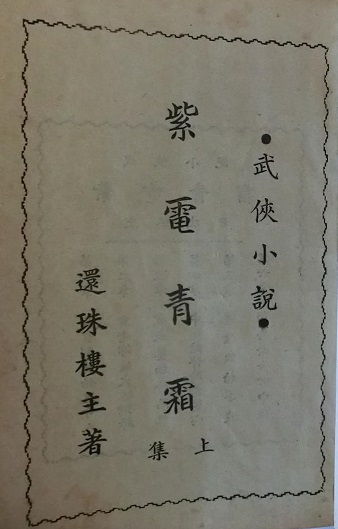 ●武俠小說●
紫電青霜
上集
還珠樓主著